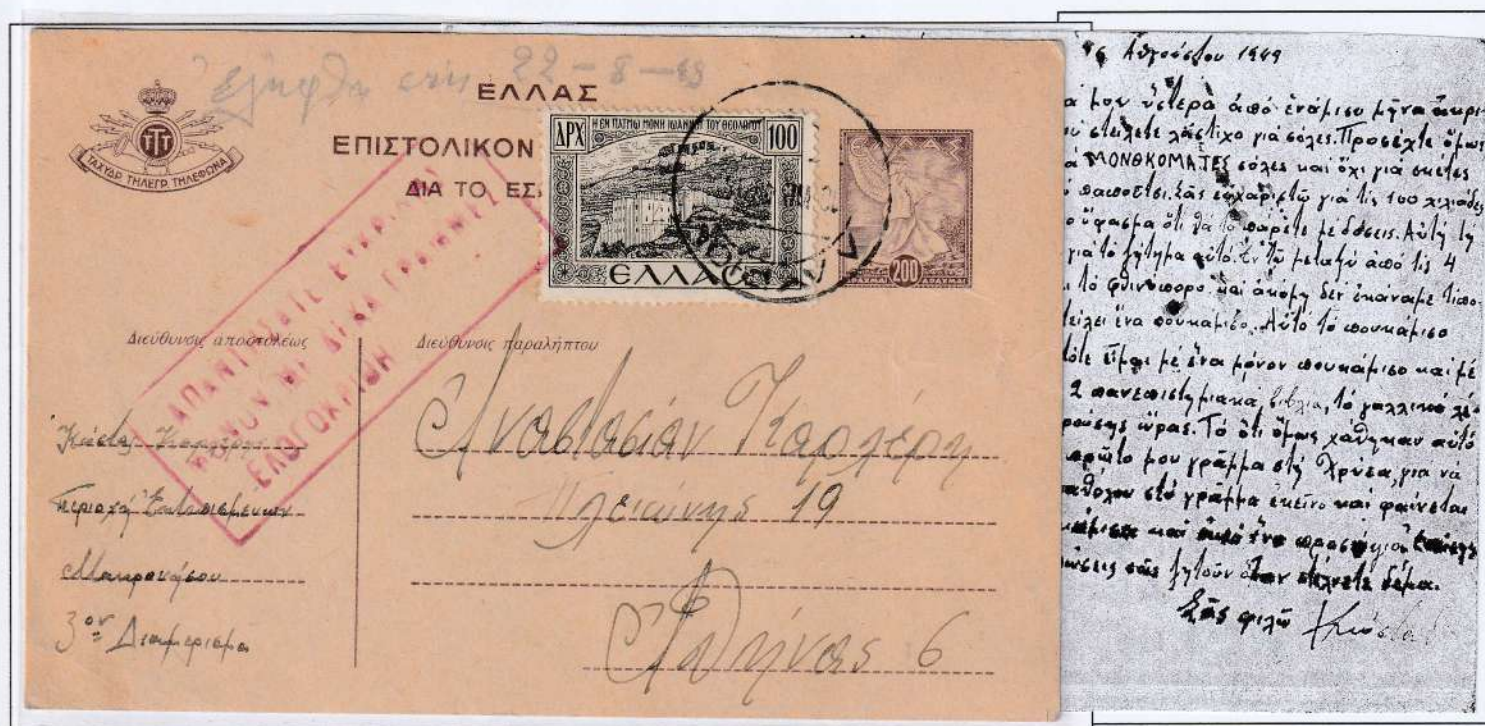 Ἐλήφθη στις 22-8-49
ΕΛΛΑΣ
ΕΠΙΣΤΟΛΙΚΟΝ
ΔΙΑ ΤΟ ΕΣ
ΤΑΧΥΔΡ. ΤΗΛΕΓΡ. ΤΗΛΕΦΩΝΑ
ΤΤΤ
ΔΡΧ Η ΕΝ ΠΑΤΜΩ ΜΟΝΗ ΙΩΑΝΝΟΥ ΤΟΥ ΘΕΟΛΟΓΟΥ 100
ΕΛΛΑΣ
ΕΛΛΑΣ
200
ΔΡΑΧΜΑΙ ΔΡΑΧΜΑΙ
ΑΠΑΝΤΗΣΑΤΕ ΕΥΚΡΙΝΩΣ
ΜΟΝΟΝ ΕΠΙ ΔΕΚΑ ΓΡΑΜΜΕΣ
ΕΛΟΓΟΚΡΙΘΗ
Διεύθυνσις αποστολέως
Κώστας
Περιοχή
Μακρονήσου
3ον Διαμέρισμα
Διεύθυνσις παραλήπτου
Ἀναστασίαν Καρλέρη
19
Ἀθήνας 6
Αὐγούστου 1949
μου ὕστερα ἀπό ἑνάμισο μῆνα ἀκρι
στείλετε λάστιχο γιά σόλες. Προσέχτε ὅμως
ΜΟΝΟΚΟΜΑΤΕΣ σόλες καί ὄχι γιά σκέτες
Σᾶς εὐχαριστῶ γιά τίς 100 χιλιάδες
ὕφασμα ὅτι θά τό πάρετε μέ δόσεις. Αὐτή τή
γιά τό ζήτημα αὐτό. Ἐν τῷ μεταξύ ἀπό τίς 4
τό φθινόπωρο καί ἀκόμη δέν ἐκάναμε τίπο
στείλει ἕνα πουκάμισο. Αὐτό τό πουκάμισο
τότε εἶμαι μέ ἕνα μόνον πουκάμισο καί μέ
2 πανεπιστημιακά βιβλία, τό γαλλικό λε
ὥρας. Τό ὅτι ὅμως χάθηκαν αὐτό
πρῶτο μου γράμμα στή Χρύσα, για νά
στό γράμμα ἐκεῖνο καί φαίνεται
καί ἕνα
σᾶς ζητοῦν ὅταν στέλνετε δέμα.
Σᾶς φιλῶ Κώστας